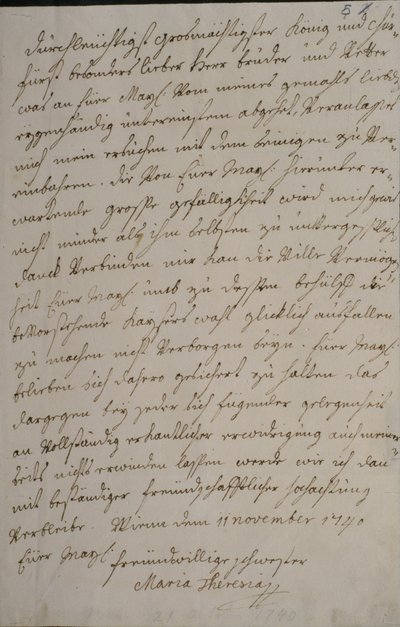 5
Durchleüchtigst Grosmächtigster König und Chur-
fürst besonders lieber Herr bruder und Vetter
was an Eüer May: Vom meines gemahls liebd:
eygenhändig unter einstem abgehet, Veranlasset
mich mein ersuchen mit dem seinigen zu Ver-
einbahren. die Von Eüer May: hierunter er-
wartende grosse gefälligkheit wird mich gewis
nicht minder als ihn selbsten zu
danck Verbinden mir kan die Ville Vermögen-
heit Eüer May: umb zu dessen behülf die
beVorstehende Kaysers wahl glicklich ausfallen
zu machen nicht Verborgen seyn. Eüer May:
belieben sich dahero gesichert zu halten das
dargegen bey jeder sich fügender gelegenheit
an Vollständig erkantlicher erwidrigung auch meiner-
seits nichts erwinden lassen werde wie ich dan
mit beständiger freündschafftlicher hochachtung
Verbleibe. Wienn dem 11 november 1740
Eüer May:
freündwillige schwester
Maria Theresia